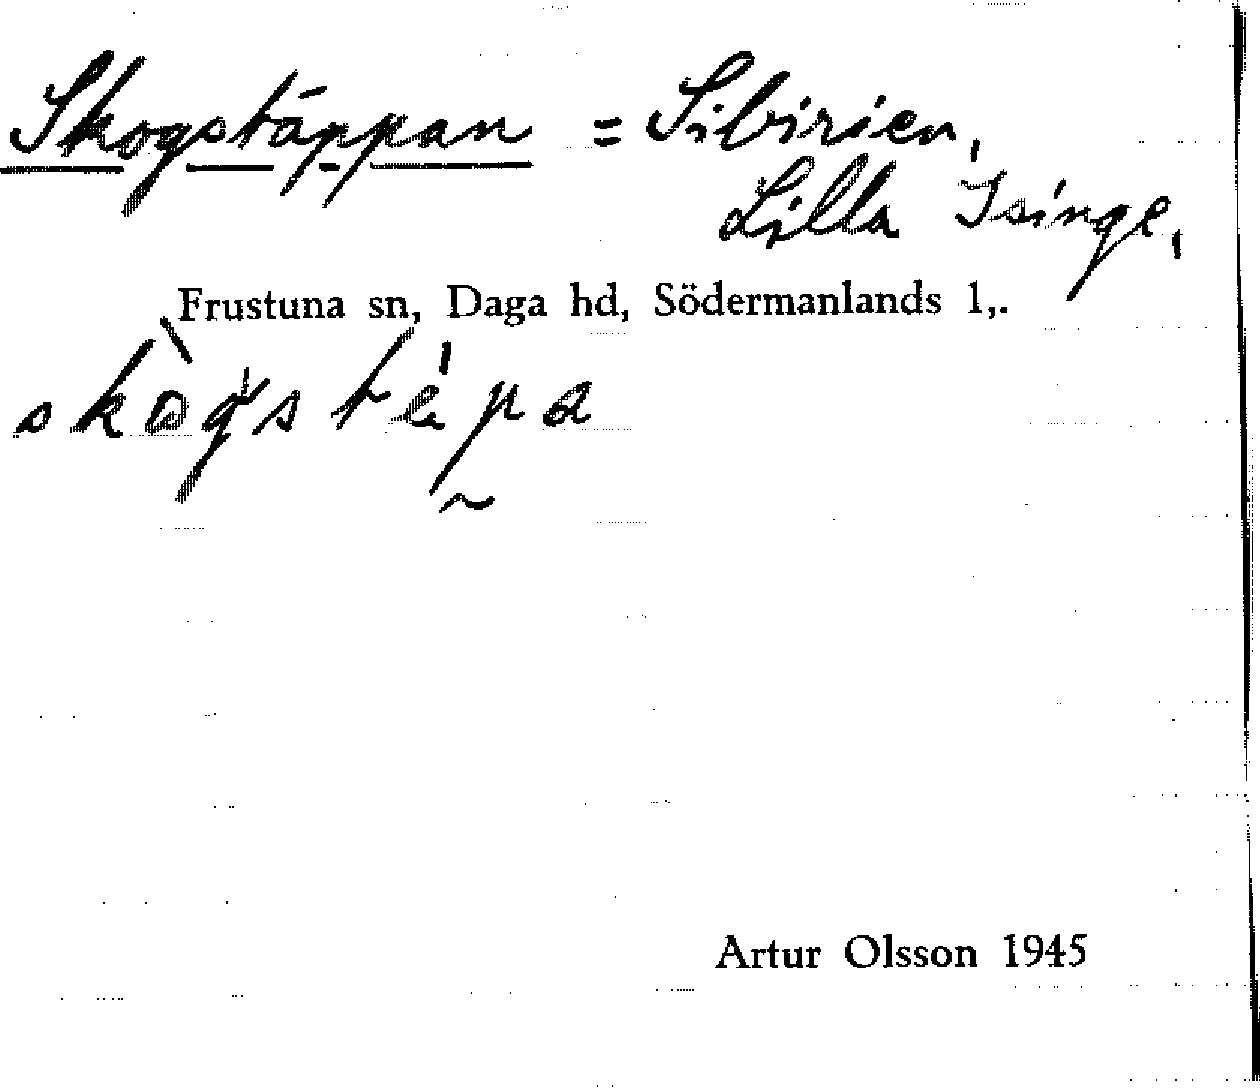 Skogstäppan = Sibirien,
Lilla Isinge,
Frustuna sn, Daga hd, Södermanlands l,.
skògstépa
Artur Olsson 1945